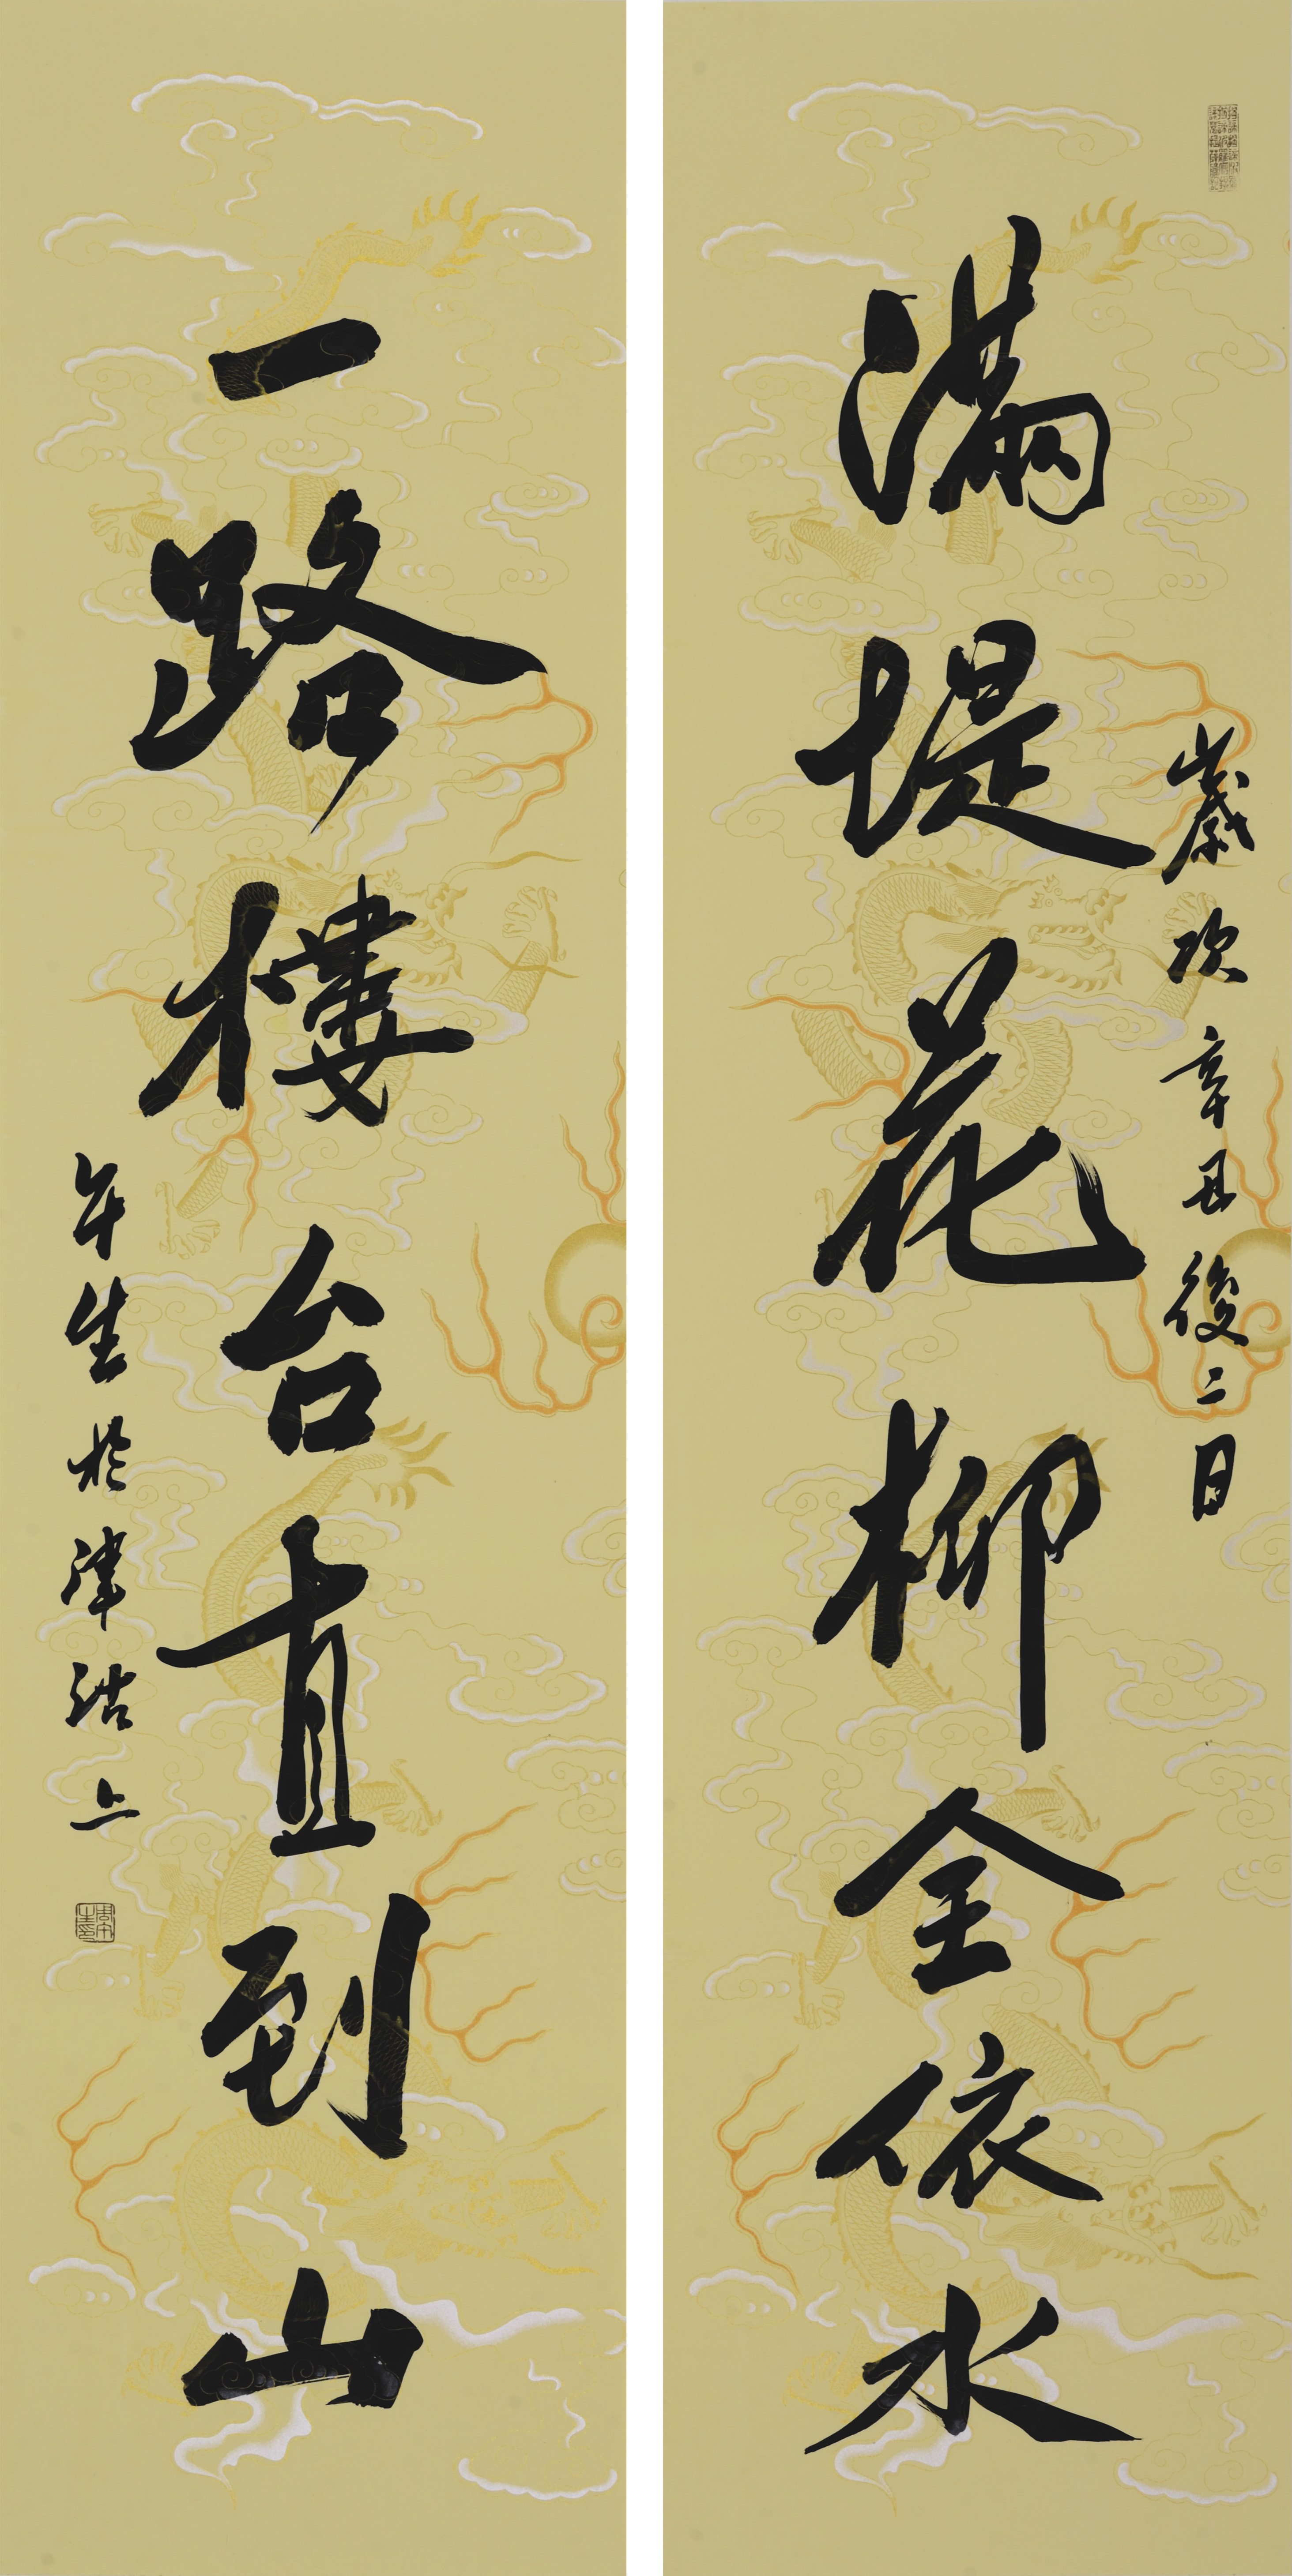 歲次辛丑後二日
滿堤花柳全依水
一路樓台直到山
午生於津沽上
周午生印